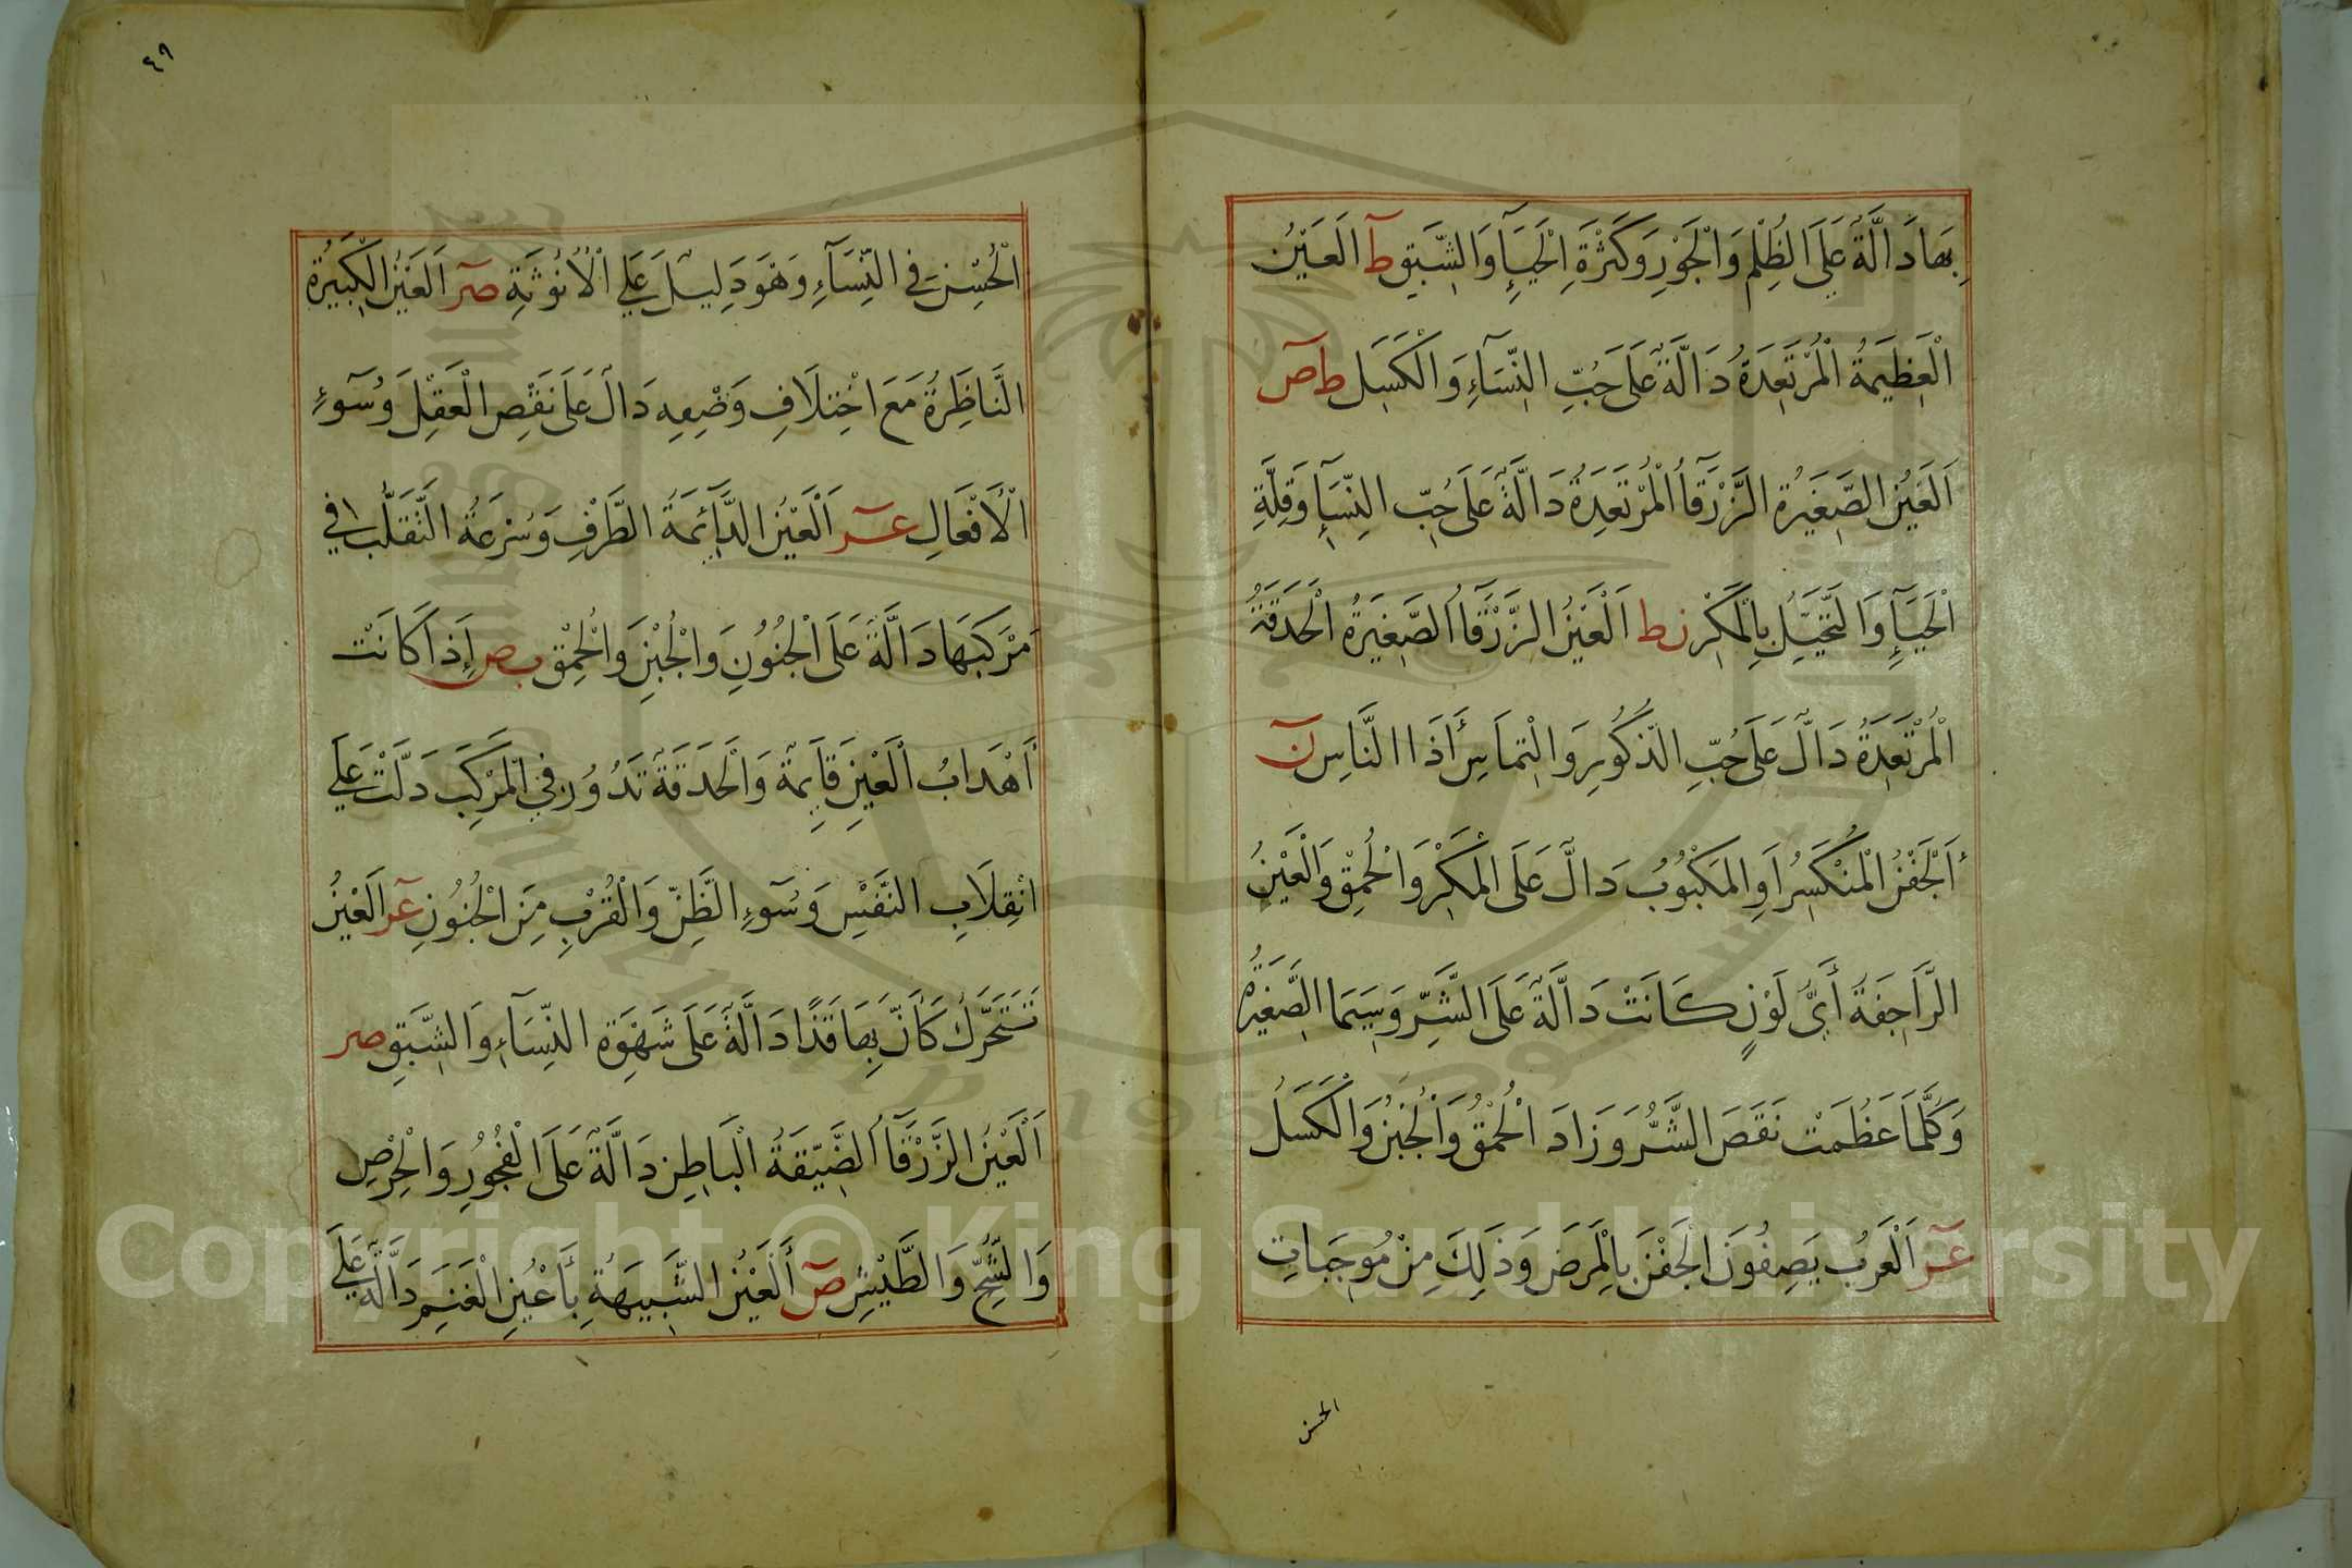 بِهَا دَالَّةٌ عَلَى الظُلْمِ وَالْجَوْرِ وَكَثْرَةِ الْحَيَآءِ وَالشَّبَقِ طَ اَلعَيْنُ
الْعَظِيمَةُ الْمُرْتَعِدَةُ دَالَّةٌ عَلَى حُبِّ النِّسَآءِ وَالْكَسَلِ ط صَ
اَلعَيْنُ الصَّغِيرَةُ الزَّرْقَآءُ الْمُرْتَعِدَةُ دَالَّةٌ عَلَى حُبِّ النِّسَآءِ وَقِلَّةِ
الْحَيَآءِ وَالتَّحَيُّلِ بِالْمَكْرِ ن ط اَلْعَيْنُ الزَّرْقَآءُ الصَّغِيرَةُ الْحَدَقَةُ
الْمُرْتَعِدَةُ دَالٌّ عَلَى حُبِّ الذُّكُورِ وَالْتِمَاسِ أَذَا النَّاسِ نَ
اَلْجَفْنُ الْمُنْكَسِرُ اَوِ الْمَكْبُوبُ دَالٌّ عَلَى الْمَكْرِ وَالْحُمْقِ وَالْعَيْنُ
الرَّاجِفَةُ أَيَّ لَوْنٍ كَانَتْ دَالَّةٌ عَلَى الشَّرِّ وَسِيَمَا الصَّغِيرَةُ
وَكُلَّمَا عَظُمَتْ نَقَصَ الشَّرُّ وَزَادَ الْحُمْقُ وَالْجُبْنُ وَالْكَسَلُ
عر اَلْعَرَبُ يَصِفُونَ الْجَفْنَ بِالْمَرَضِ وَذَلِكَ مِنْ مُوجَبَاتِ
الحسن
٤٩
الْحُسْنِ فِي النِّسَآءِ وَهُوَ دَلِيلٌ عَلَى الْأُنُوثَةِ صر اَلعَيْنُ الْكَبِيرَةُ
النَّاظِرَةُ مَعَ اخْتِلَافِ وَضْعِهِ دَالٌّ عَلَى نَقْصِ الْعَقْلِ وَسُوءِ
الْأَفْعَالِ عر اَلْعَيْنُ الدَّآئِمَةُ الطَّرْفِ وَسُرْعَةُ التَّقَلُّبِ فِي
مَرْكَبِهَا دَالَّةٌ عَلَى الْجُنُونِ وَالْجُبْنِ وَالْحُمْقِ ب ص إِذَا كَانَتْ
أَهْدَابُ الْعَيْنِ قَايِمَةً وَالْحَدَقَةُ تَدُورُ فِي الْمَرْكَبِ دَلَّتْ عَلَى
انْقِلَابِ النَّفْسِ وَسُوءِ الظَّنِّ وَالْقُرْبِ مِنَ الْجُنُونِ عر اَلعَيْنُ
تَتَحَرَّكُ كَأَنَّ بِهَا قَذًا دَالَّةٌ عَلَى شَهْوَةِ النِّسَآءِ وَالشَّبَقِ صر
اَلْعَيْنُ الزَّرْقَآءُ الضَّيِّقَةُ الْبَاطِنِ دَالَّةٌ عَلَى الْفُجُورِ وَالْحِرْصِ
وَالشُّحِّ وَالطَّيْشِ صَ أَلْعَيْنُ الشَّبِيهَةِ بِأَعْيُنِ الْغَنَمِ دَالَّةٌ عَلَى
Copyright © King Saud University